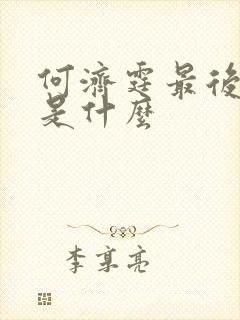 何濟霆最後
是什麼
李享亮